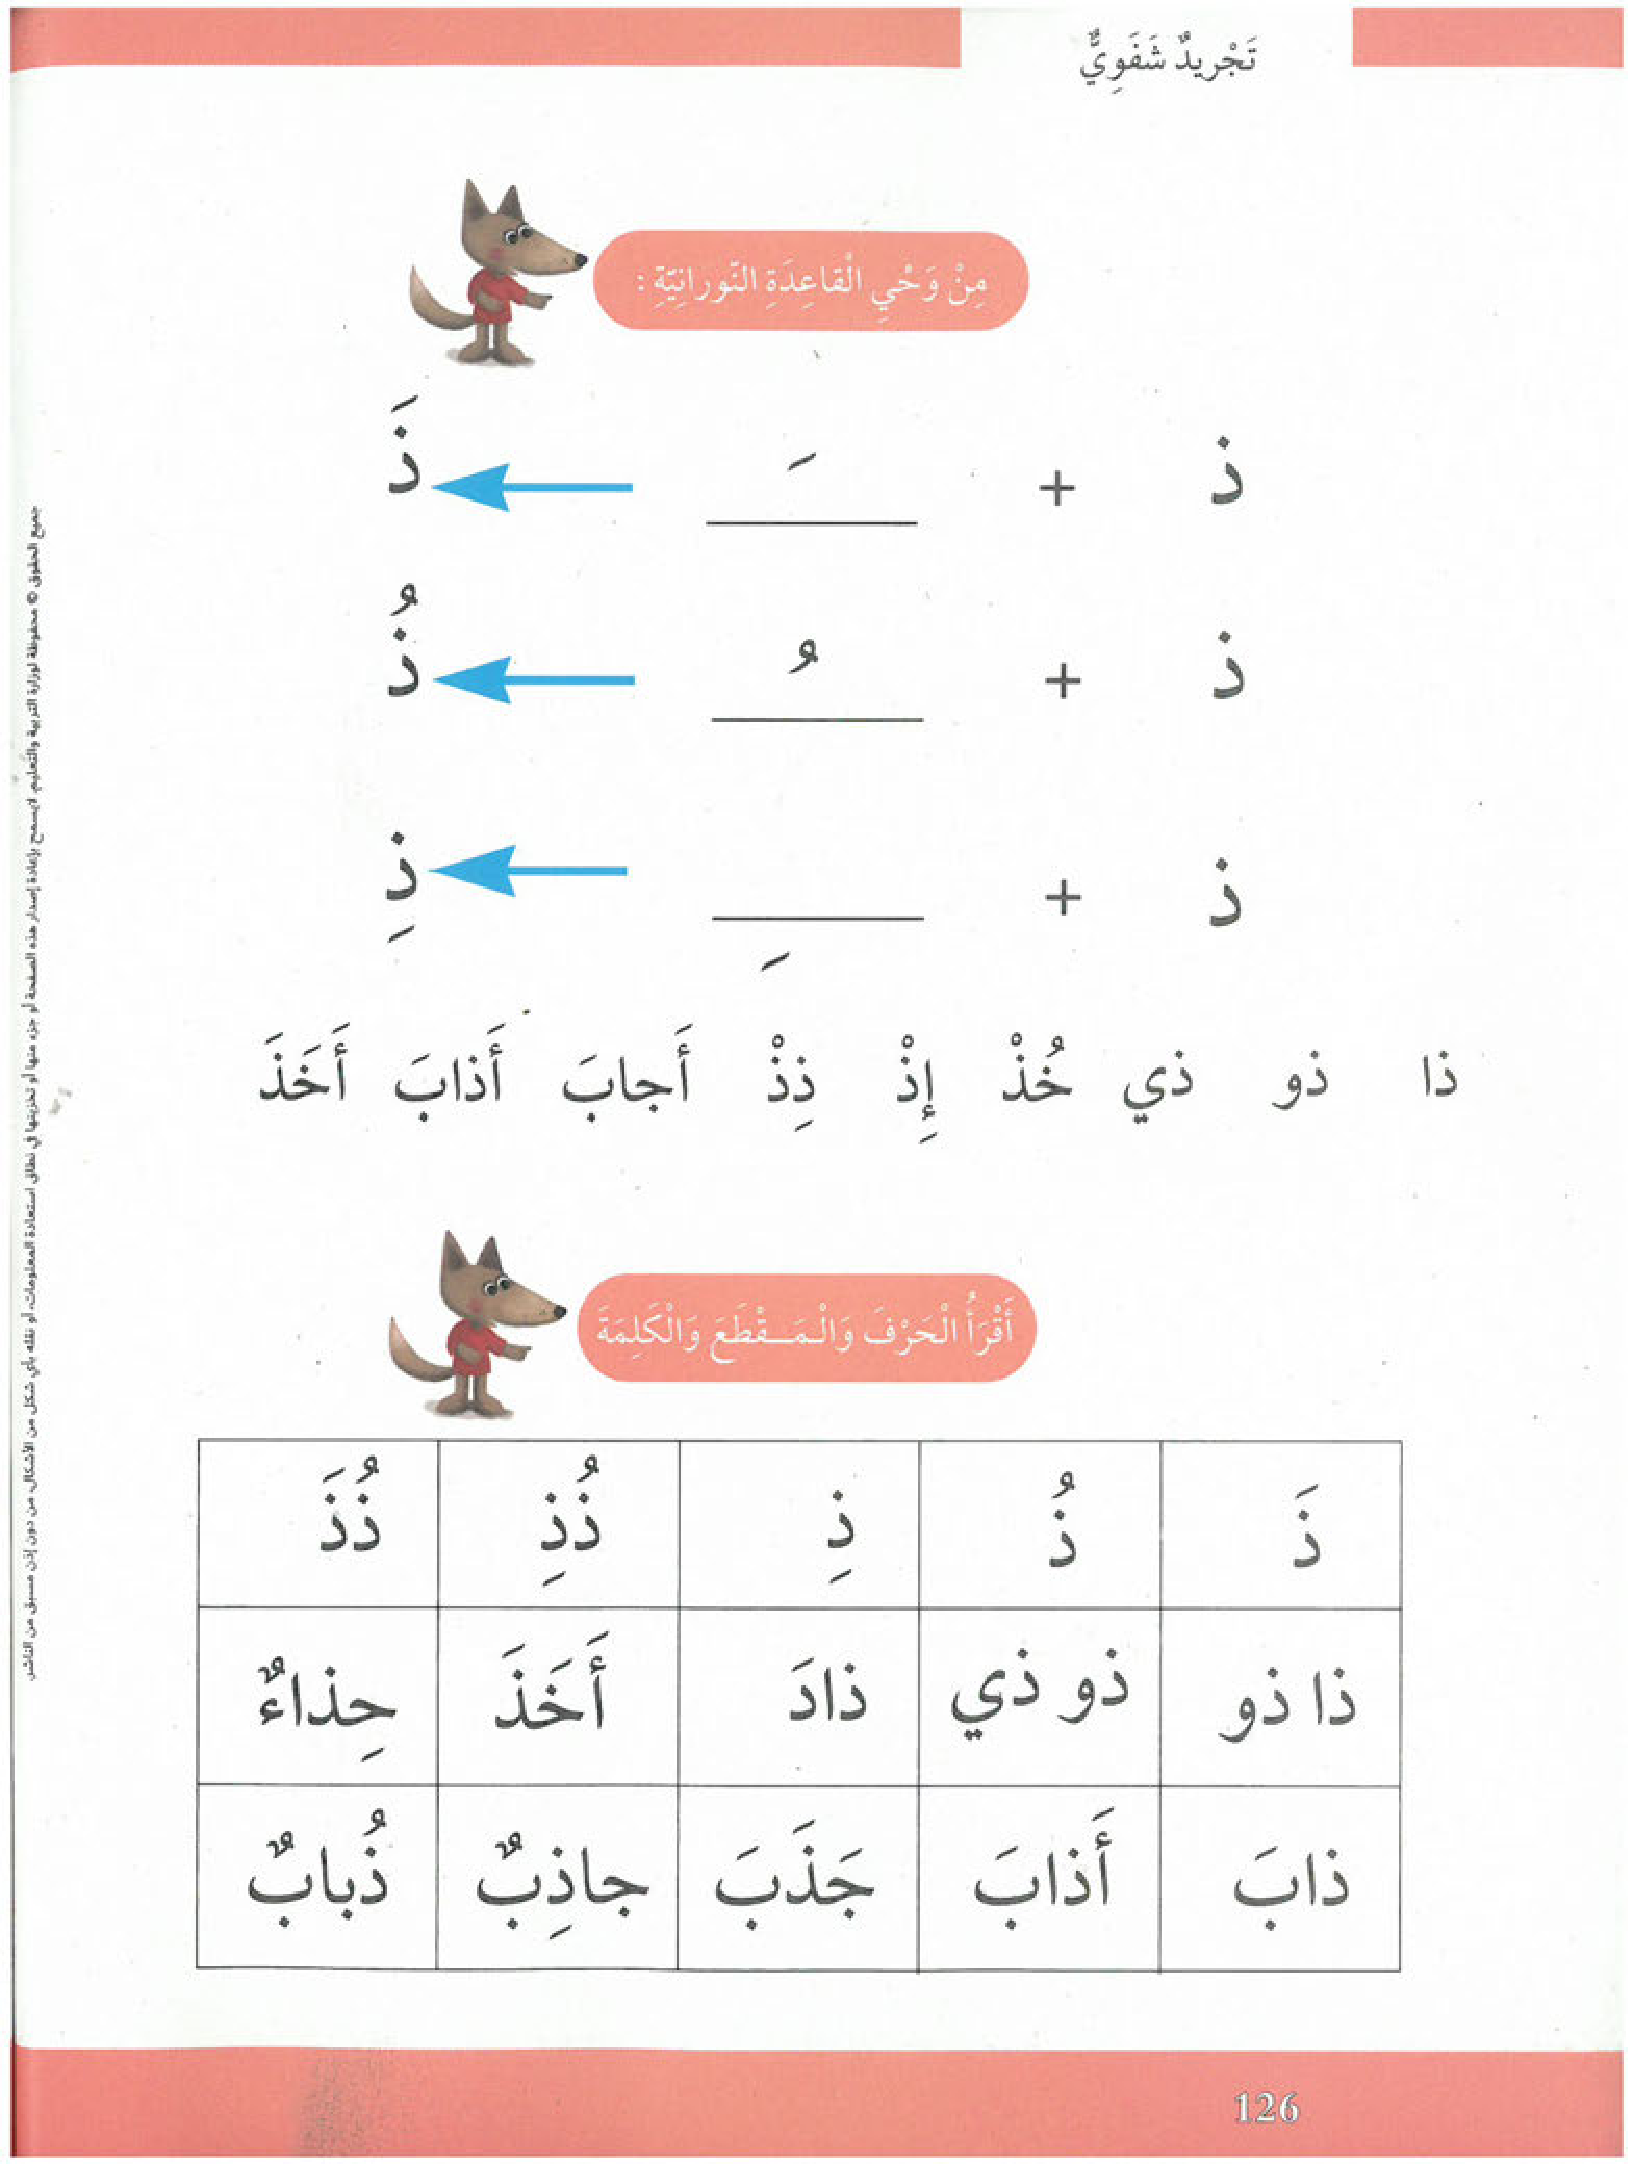 تَجْريدٌ شَفَوِيٌّ
مِنْ وَحْيِ الْقاعِدَةِ النّورانِيّةِ :
ذ + ـَ ذَ
ذ + ـُ ذُ
ذ + ـِ ذِ
ذا ذو ذي خُذْ إِذْ ذِذْ أَجابَ أَذابَ أَخَذَ
أَقْرَأُ الْحَرْفَ وَالْمَـقْطَعَ وَالْكَلِمَةَ
ذَ ذُ ذِ ذُذِ ذُذَ
ذا ذو ذو ذي ذادَ أَخَذَ حِذاءٌ
ذابَ أَذابَ جَذَبَ جاذِبٌ ذُبابٌ
126
جميع الحقوق © محفوظة لوزارة التربية والتعليم. لايسمح بإعادة إصدار هذه الصفحة أو جزء منها أو تخزينها في نطاق استعادة المعلومات، أو نقله بأي شكل من الأشكال، من دون إذن مسبق من الناشر.